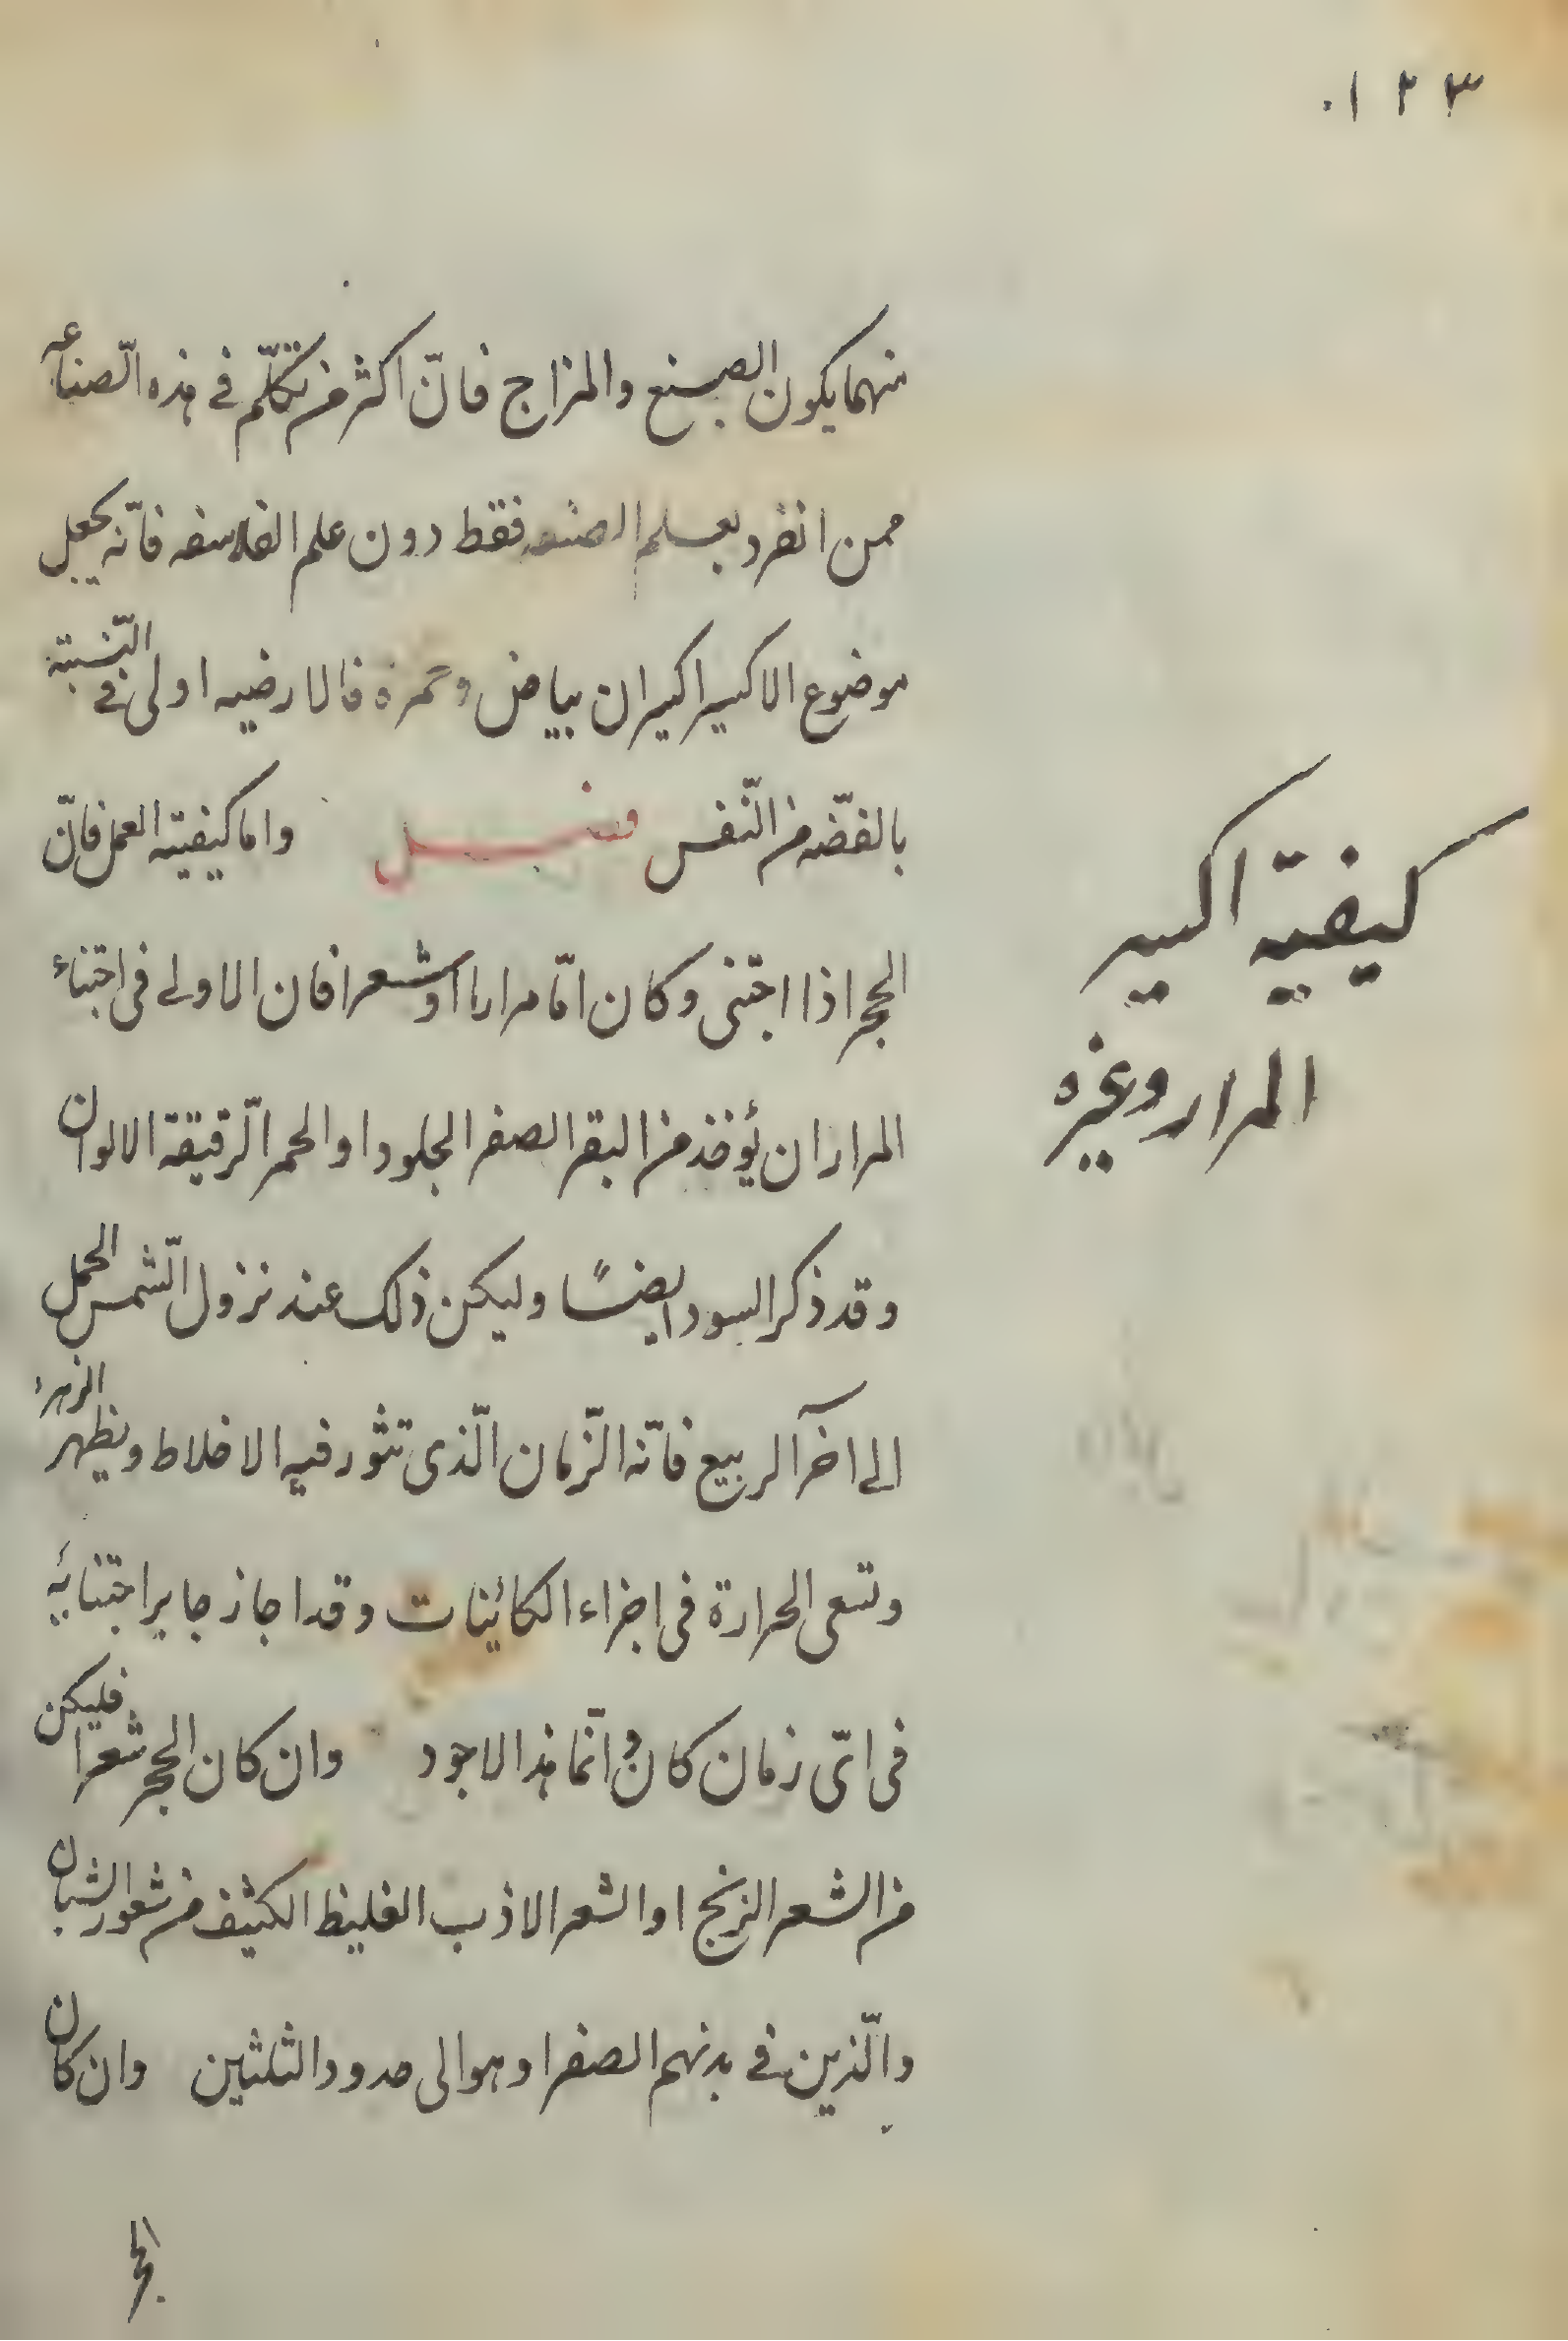 ٣ ٢ ١٠
منهما يكون الصبغ والمزاج فانّ اكثر من تكلّم فى هذه الصّناعه
ممن انفرد بعلم الصنعه فقط دون علم الفلاسفه فانّه يجعل
موضوع الاكسير اكسيران بياض وحمرة فالارضيه اولى فى النّسبة
بالفضّه من النّفس فصل واما كيفية العمل فانّ
الحجر اذا اجتنى وكان امّا مرارا او شعرا فان الاولى فى اجتناء
المرار ان يؤخذ من البقر الصفر الجلود او الحمر الرّقيقة الالوان
وقد ذكر السود ايضًا وليكن ذلك عند نزول الشّمس الحمل
الى اخر الربيع فانّه الزّمان الّذى تثور فيه الاخلاط ويظهر الزهر
وتسعى الحرارة فى اجزاء الكائينات وقد اجاز جابر اجتنائه
فى اىّ زمان كان وانّما هذا الاجود وان كان الحجر شعرا فليكن
من الشعر الزنج او الشعر الاذب الغليظ الكثيف من شعور الشبان
والّذين فى بدنهم الصفرا وهو الى حدود الثلثين وان كان
الحجر
كيفيّة اكسير
المرار وغيره